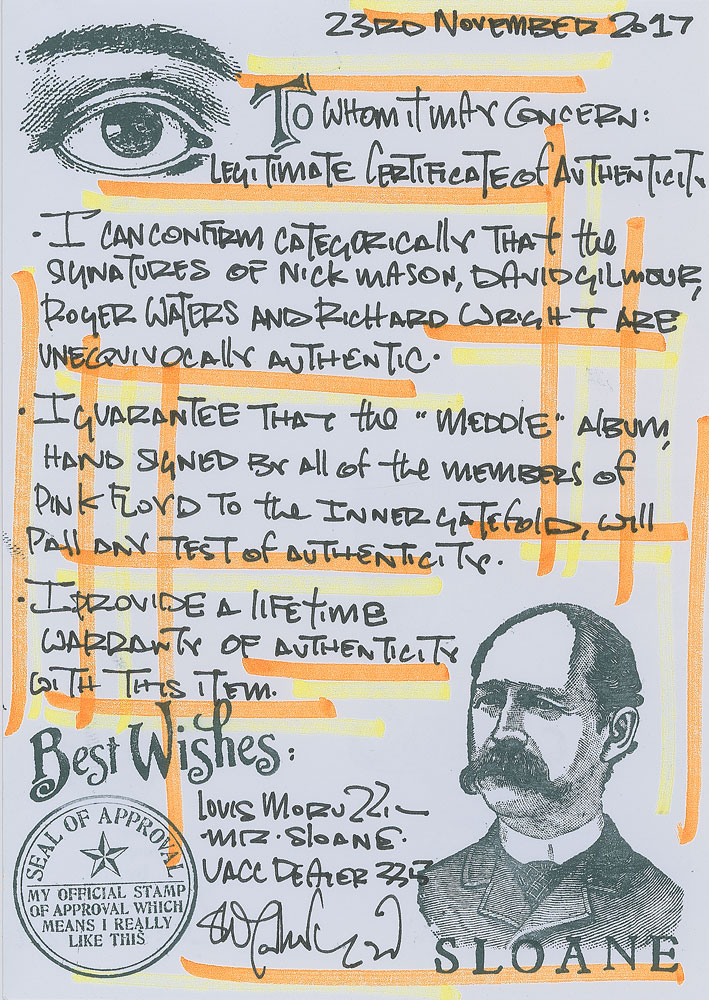 23RD NOVEMBER 2017
TO WHOM IT MAY CONCERN:
LEGITIMATE CERTIFICATE of AUTHENTICITY
• I CAN CONFIRM CATEGORICALLY THAT the
SIGNATURES OF NICK MASON, DAVID GILMOUR,
ROGER WATERS AND RICHARD WRIGHT ARE
UNEQUIVOCALLY AUTHENTIC.
• I GUARANTEE THAT the "MEDDLE" ALBUM,
HAND SIGNED BY All of the MEMBERS of
PINK FLOYD TO the INNER GATEFOLD, will
PASS ANY TEST of AUTHENTICITY.
• I PROVIDE A LIFETIME
WARRANTY OF AUTHENTICITY
WITH THIS ITEM.
Best Wishes:
LOUIS MORU22I.–
·MR·SLOANE·
UACC DEALER 333
SEAL OF APPROVAL
MY OFFICIAL STAMP
OF APPROVAL WHICH
MEANS I REALLY
LIKE THIS
SLOANE